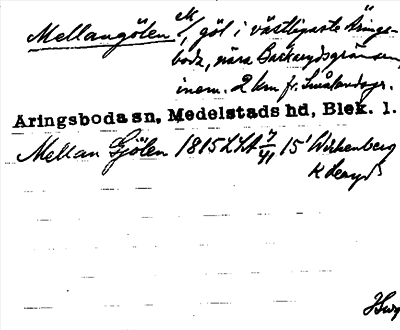 Mellangölen, göl i västligaste Årings-
boda, nära Backarydsgränsen,
inom 2 km fr. Smålandsgr.
Åringsboda sn, Medelstads hd, Blek. l.
Mellan Gjölen 1815 LSA 7/41 15' Wirkenberg